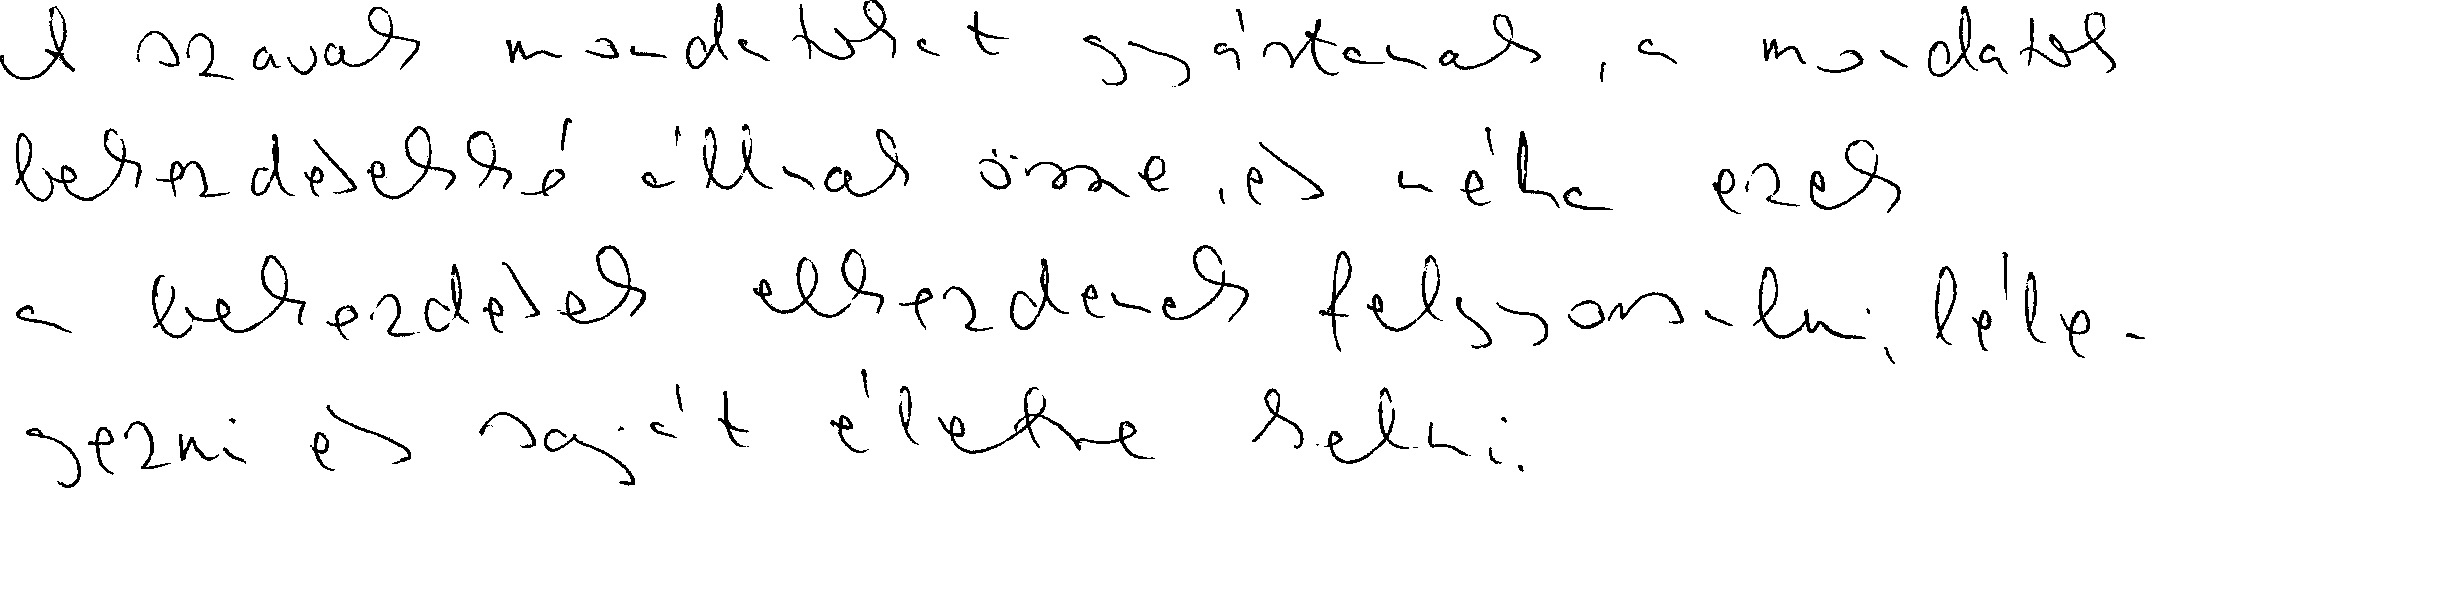 A szavak mondatokat gyártanak, a mondatok
bekezdésekké állnak össze, és néha ezek
a bekezdések elkezdenek felgyorsulni, léle-
gezni és saját életre kelni.